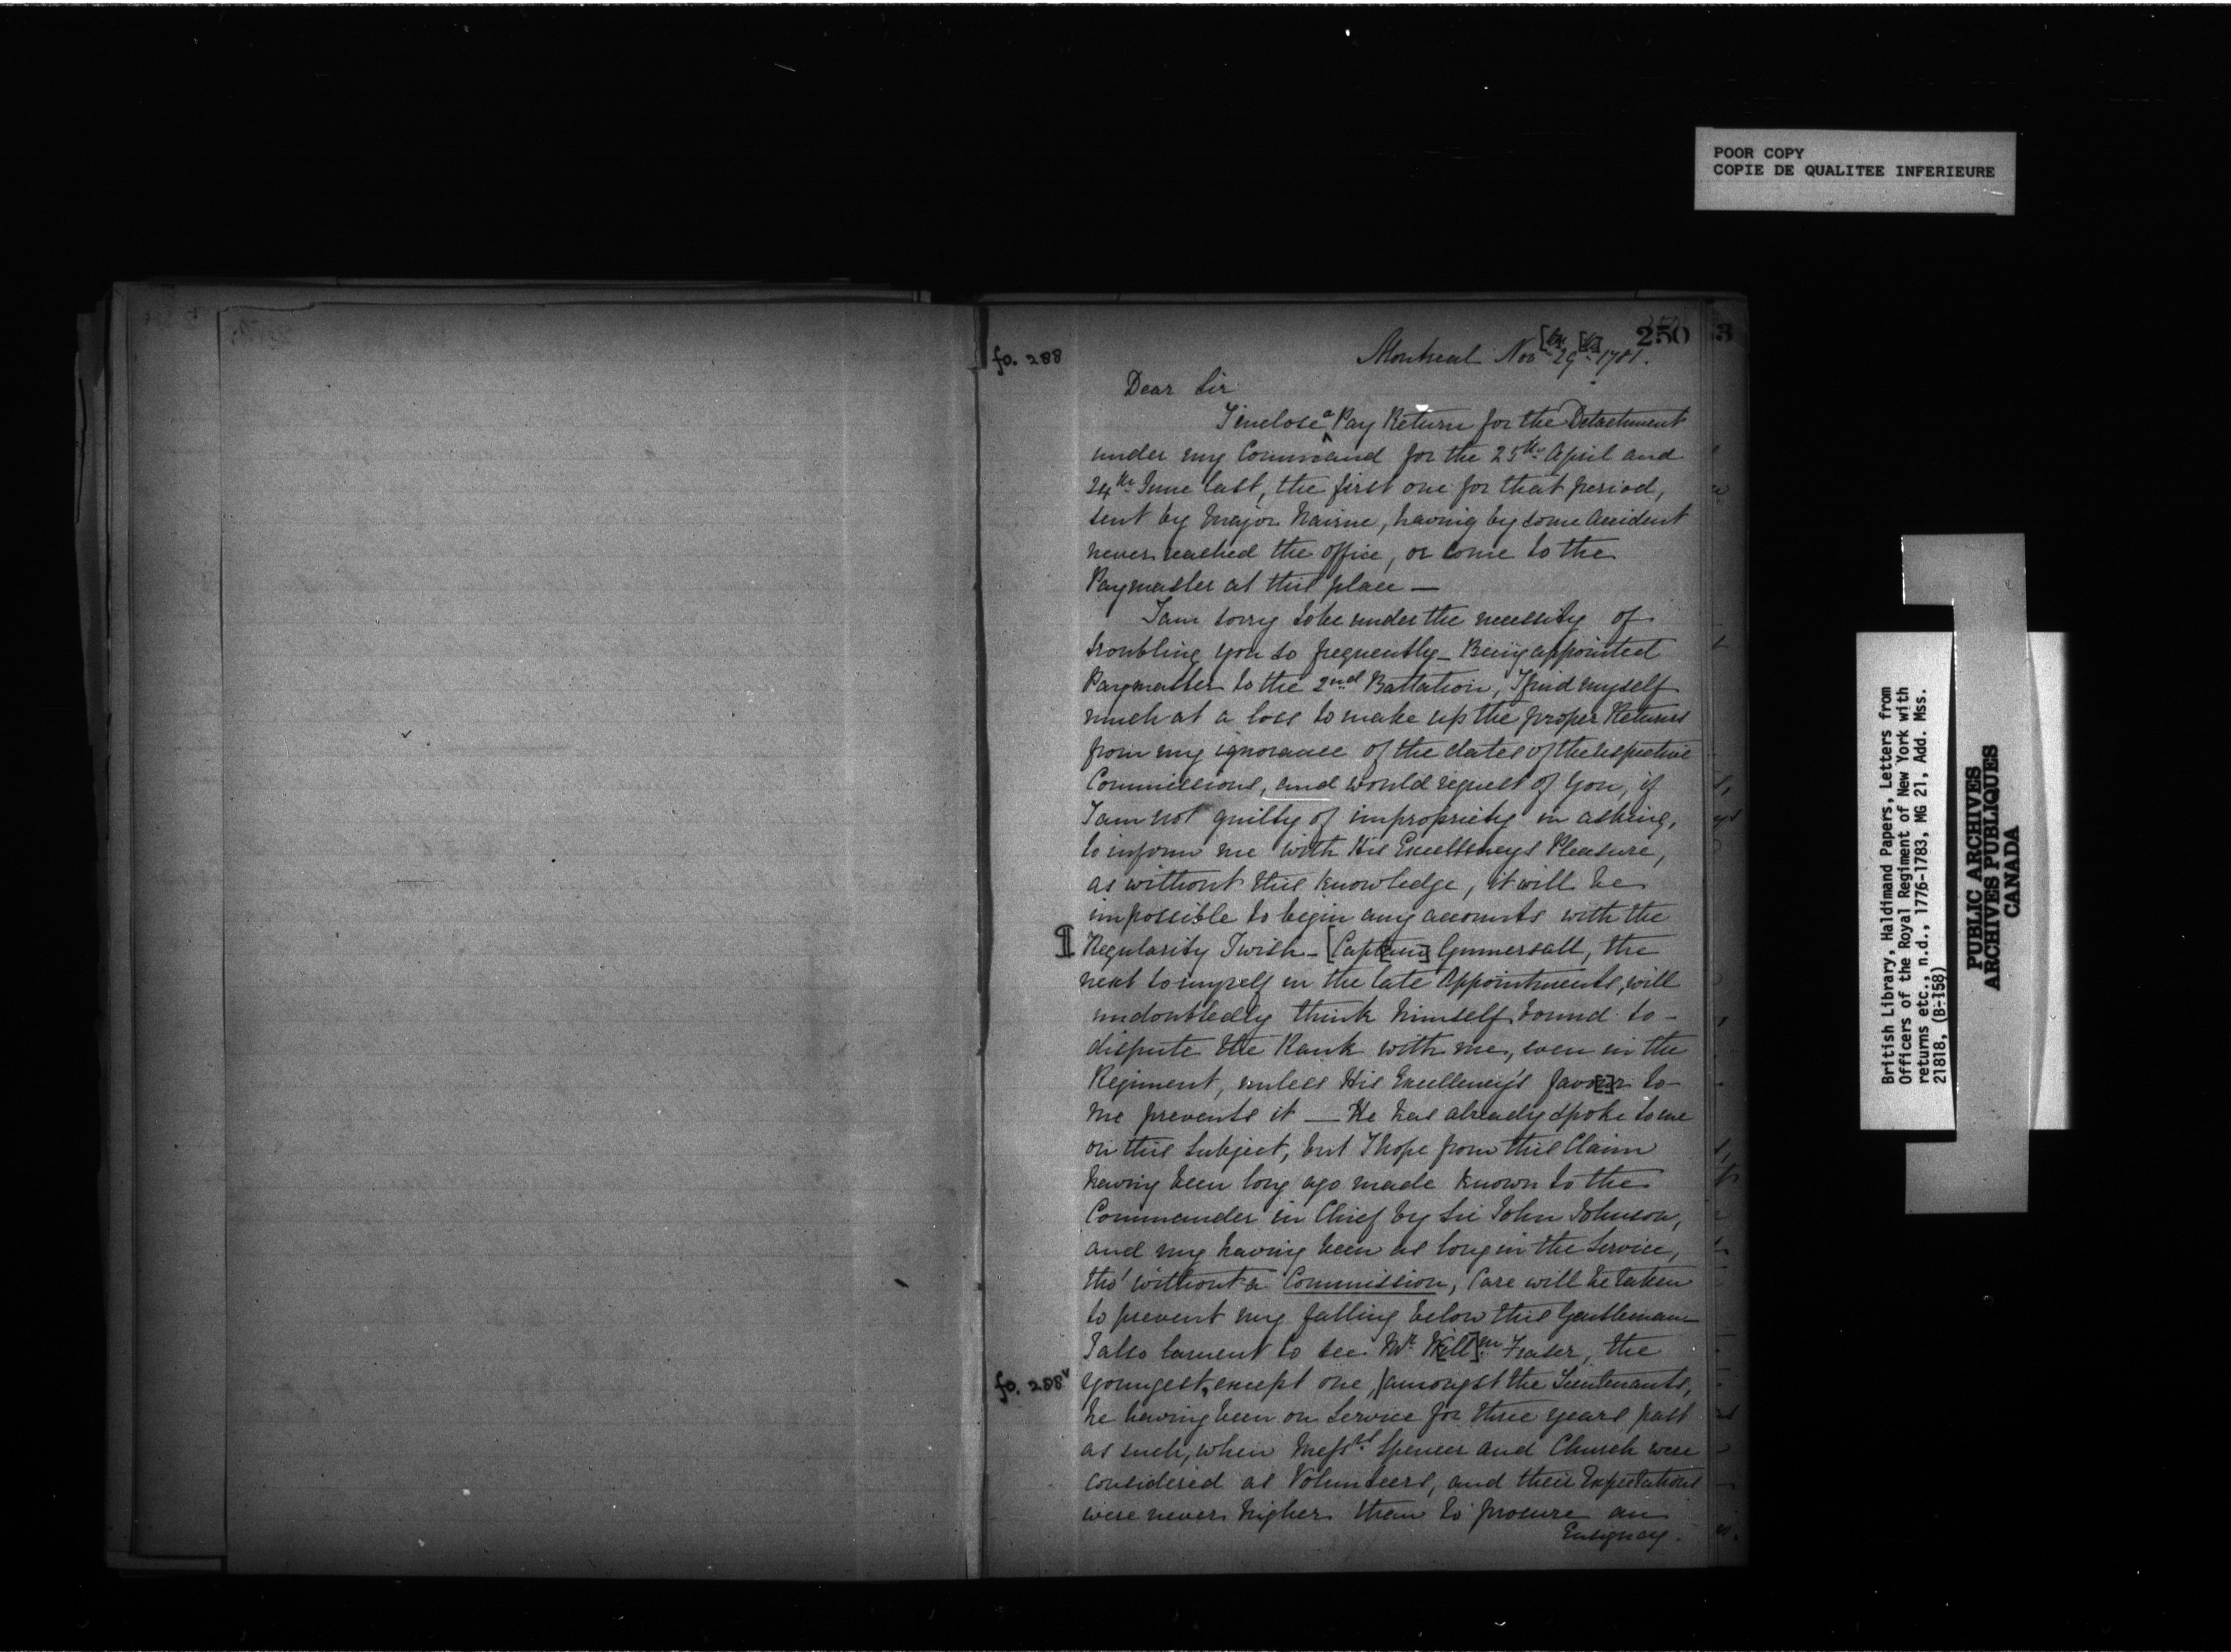 POOR COPY
COPIE DE QUALITEE INFERIEURE
250
fo. 288
Montreal Nov[br] 29[th] 1781.
Dear Sir
I inclose a Pay Return for the Detachment
under my Command for the 25th April and
24th June last, the first one for that period,
sent by Major Nairne, having by some Accident
never reached the office, or come to the
Paymaster at this place —
I am sorry to be under the necessity of
troubling you so frequently – Being appointed
Paymaster to the 2nd Battalion, I find myself
much at a loss to make up the proper Returns
from my ignorance of the dates of the respective
Commissions, and would request of You, if
I am not guilty of impropriety in asking,
to inform me with His Excellencys Pleasure,
as without this knowledge, it will be
impossible to begin any accounts with the
¶ Regularity I wish – [Capt[ain] Gummersall, the
next to myself in the late Appointments, will
undoubtedly think himself bound to –
dispute the Rank with me, even in the
Regiment, unless His Excellency's favo[u]r to
me prevents it — He has already spoke to me
on this Subject, but I hope from this Claim
having been long ago made known to the
Commander in Chief by Sir John Johnson,
and my having been as long in the Service,
tho' without a Commission, Care will be taken
to prevent my falling below this Gentleman
I also lament to see Mr. W[ill]m Fraser, the
fo. 288v
youngest, except one, amongst the Lieutenants,
he having been on Service for three years past
as such, when Messrs Spencer and Church were
considered as Volunteers, and their Expectations
were never higher than to procure an
Ensigncy.
British Library, Haldimand Papers, Letters from
Officers of the Royal Regiment of New York with
returns etc., n.d., 1776-1783, MG 21, Add. Mss.
21818, (B-158)
PUBLIC ARCHIVES
ARCHIVES PUBLIQUES
CANADA